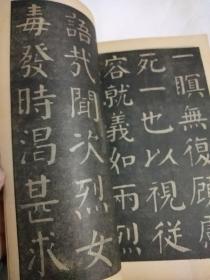 一瞑無復顧慮
死一也以視從
容就義如兩烈
語哉聞次烈女
毒發時渴甚求